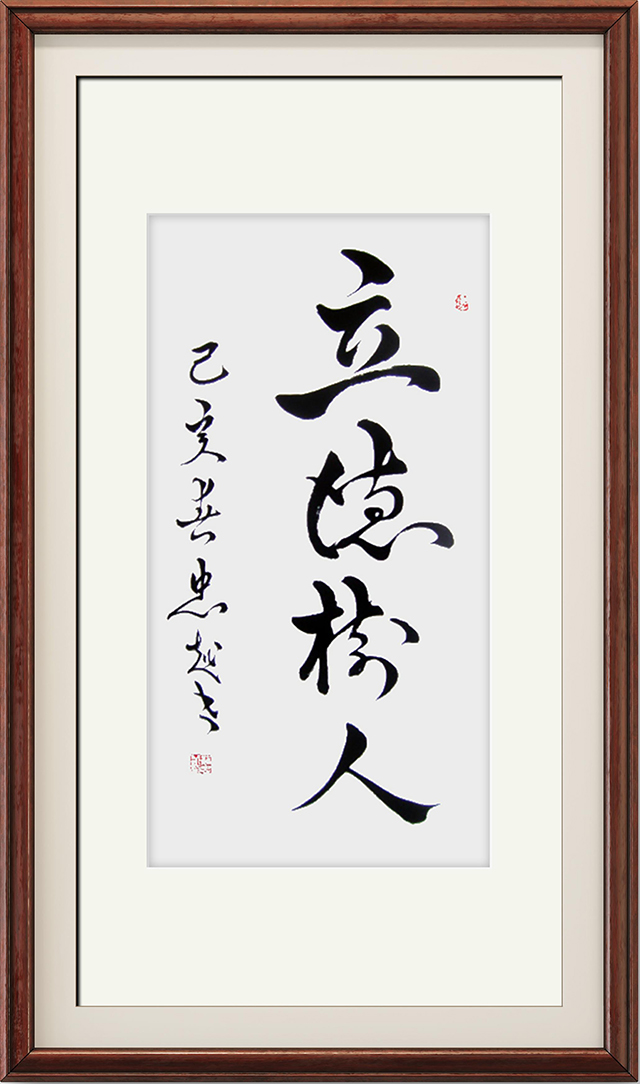 立德樹人
己亥春忠越书